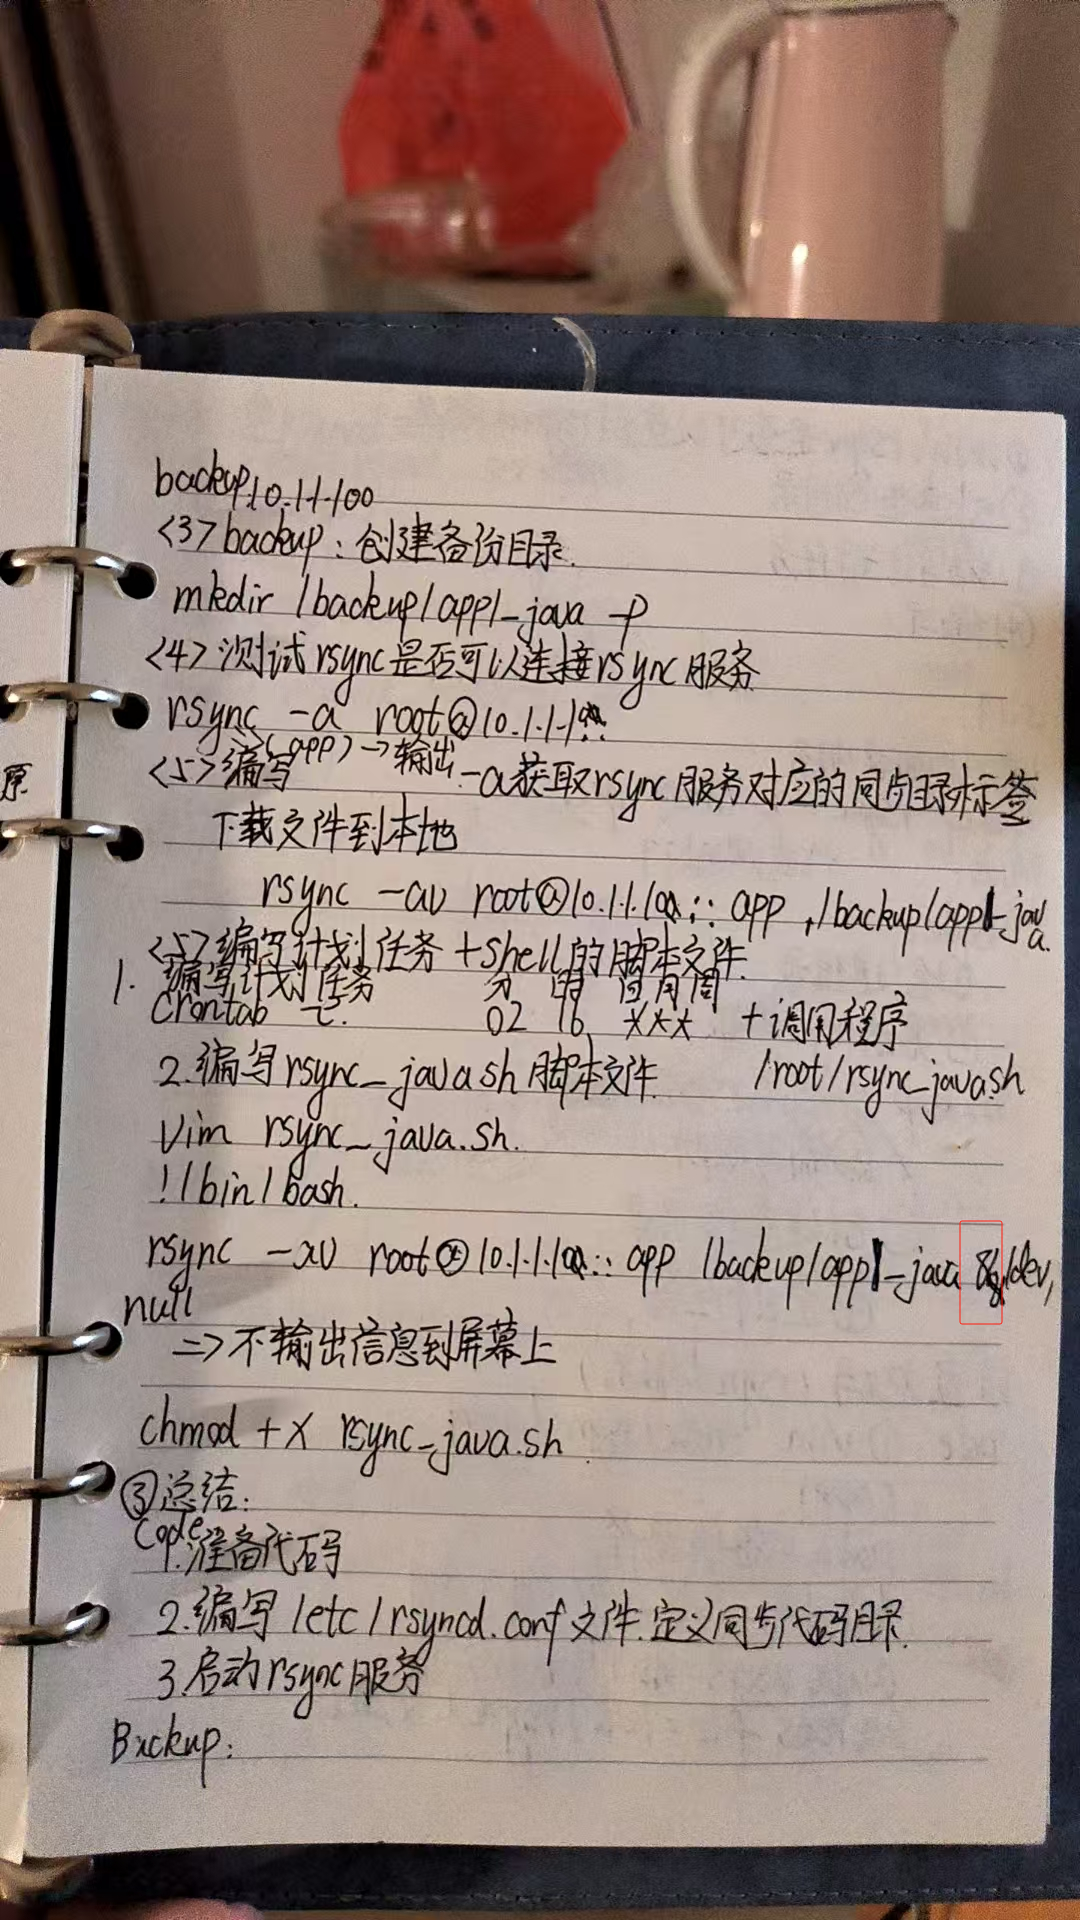 backup.10.1.1.100
<3> backup: 创建备份目录.
mkdir /backup/app1_java -p
<4> 测试rsync是否可以连接rsync服务
rsync -a root@10.1.1.1
(app) → 输出
<5> 编写 -a获取rsync服务对应的同步目录标签
原
下载文件到本地
rsync -av root@10.1.1.100:: app /backup/app1_java
<5> 编写计划任务 + shell的脚本文件.
1. 编写计划任务 分 时 日 月 周
Crontab -e. 02 16 *** + 调用程序
2.编写rsync_java.sh脚本文件. /root/rsync_java.sh
Vim rsync_java.sh.
!/bin/bash.
rsync -av root@10.1.1.100:: app /backup/app1_java /dev/
null
=> 不输出信息到屏幕上
chmod +x rsync_java.sh
③总结:
Code
1.准备代码
2.编写 /etc/rsyncd.conf文件.定义同步代码目录.
3.启动rsync服务
Backup: